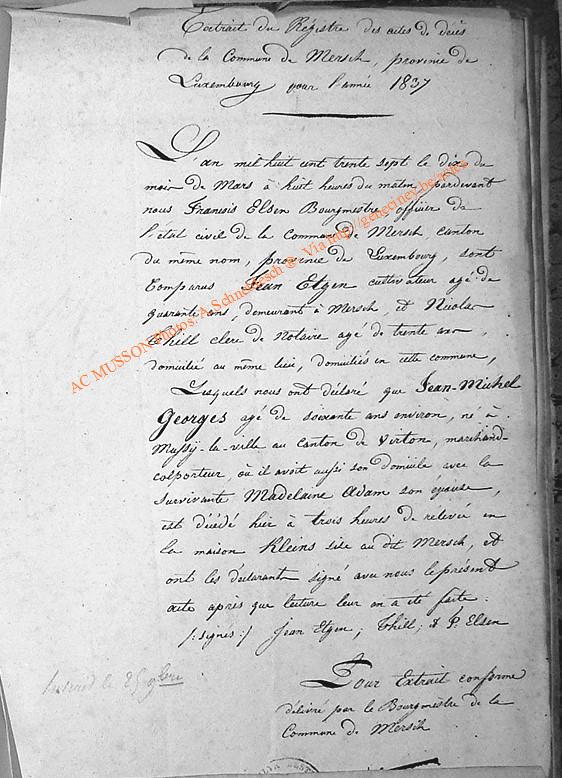 Extrait du Régistre des actes de décès
de la Commune de Mersch, province de
Luxembourg pour l'année 1837
L'an mil huit cent trente sept le dix du
mois de Mars à huit heures du matin, pardevant
nous François Elsen Bourgmestre officier de
l'état civil de la Commune de Mersch canton
du même nom, province de Luxembourg, sont
Comparus Jean Etgen cultivateur agé de
quarante ans, demeurant à Mersch, et Nicolas
Thill Clerc de Notaire agé de trente ans,
domicilié au même lieu, domiciliés en cette commune,
Lesquels nous ont déclaré que Jean-Michel
Georges agé de soixante ans environ, né à
Mussy-la-ville au canton de Virton, marchand-
colporteur, où il avoit aussi son domicile avec la
survivante Madelaine Adam son épouse,
est décédé hier à trois heures de relevée en
la maison Kleins sise au dit Mersch, et
ont les déclarants signé avec nous le présent
acte après que lecture leur en a été faite.
/:signés:/ Jean Etgen; Thill; & P. Elsen
Pour Extrait conforme
délivré par le Bourgmestre de la
Commune de Mersch
AC MUSSON Photos: A.Schneidesch @ Via http://geneciney.be